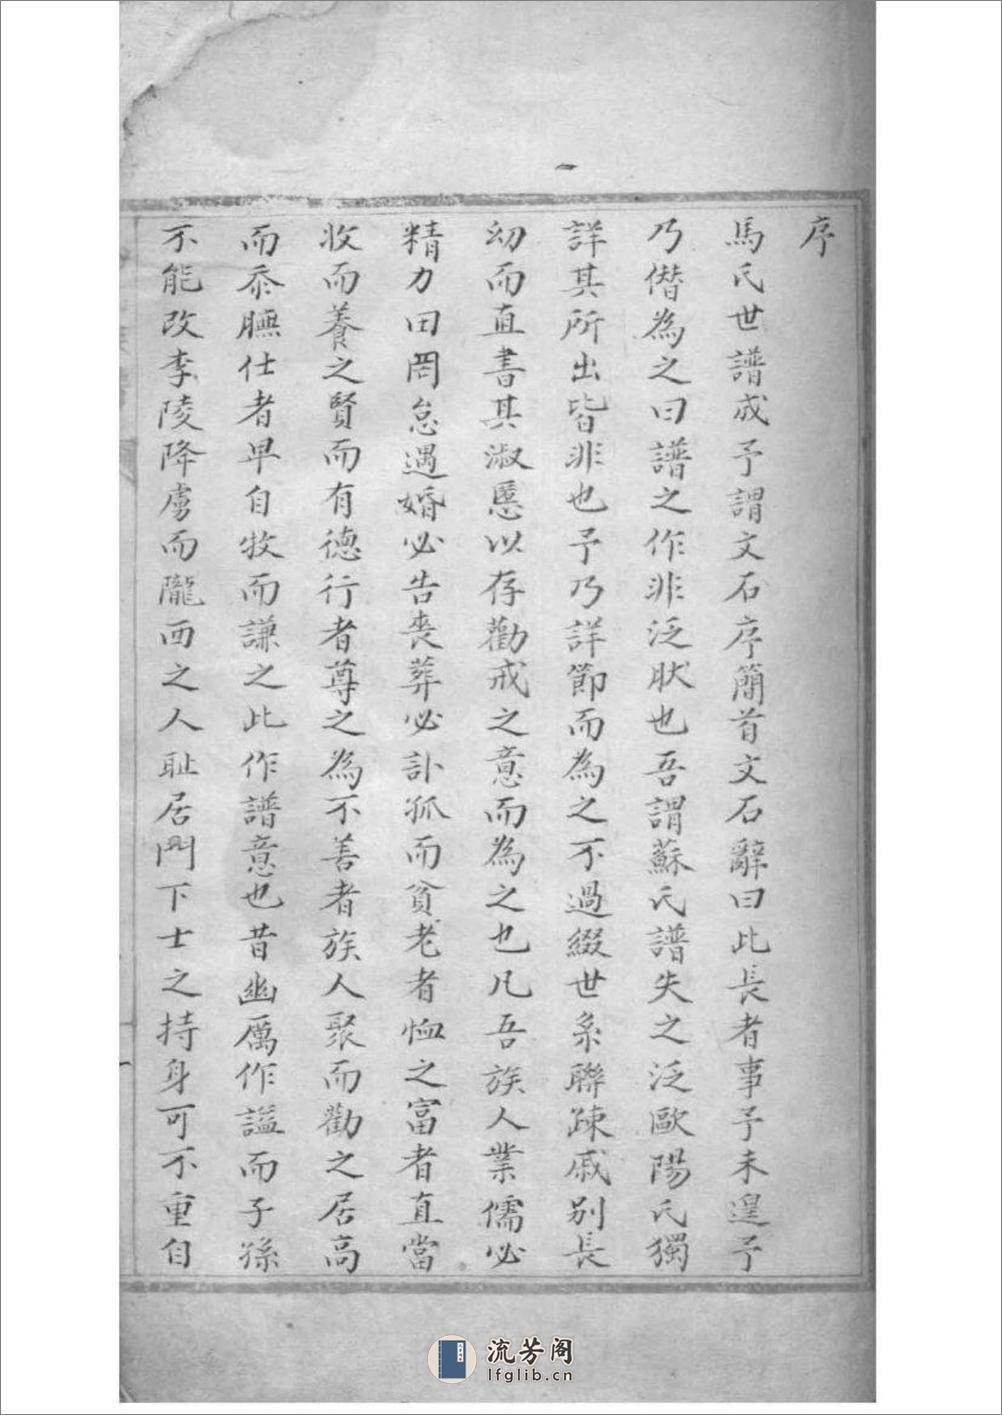 序
馬氏世譜成予謂文石序簡首文石辭曰此長者事予未遑予
乃僭為之曰譜之作非泛肰也吾謂蘇氏譜失之泛歐陽氏獨
詳其所出皆非也予乃詳節而為之不過綴世系聯疎戚别長
幼而直書其淑慝以存勸戒之意而為之也凡吾族人業儒必
精力田罔怠遇婚必告喪葬必訃孤而貧老者恤之富者直當
收而養之賢而有德行者尊之為不善者族人聚而勸之居高
而忝膴仕者早自牧而謙之此作譜意也昔幽厲作謚而子孫
不能改李陵降虜而隴西之人耻居門下士之持身可不重自
流芳阁
lfglib.cn